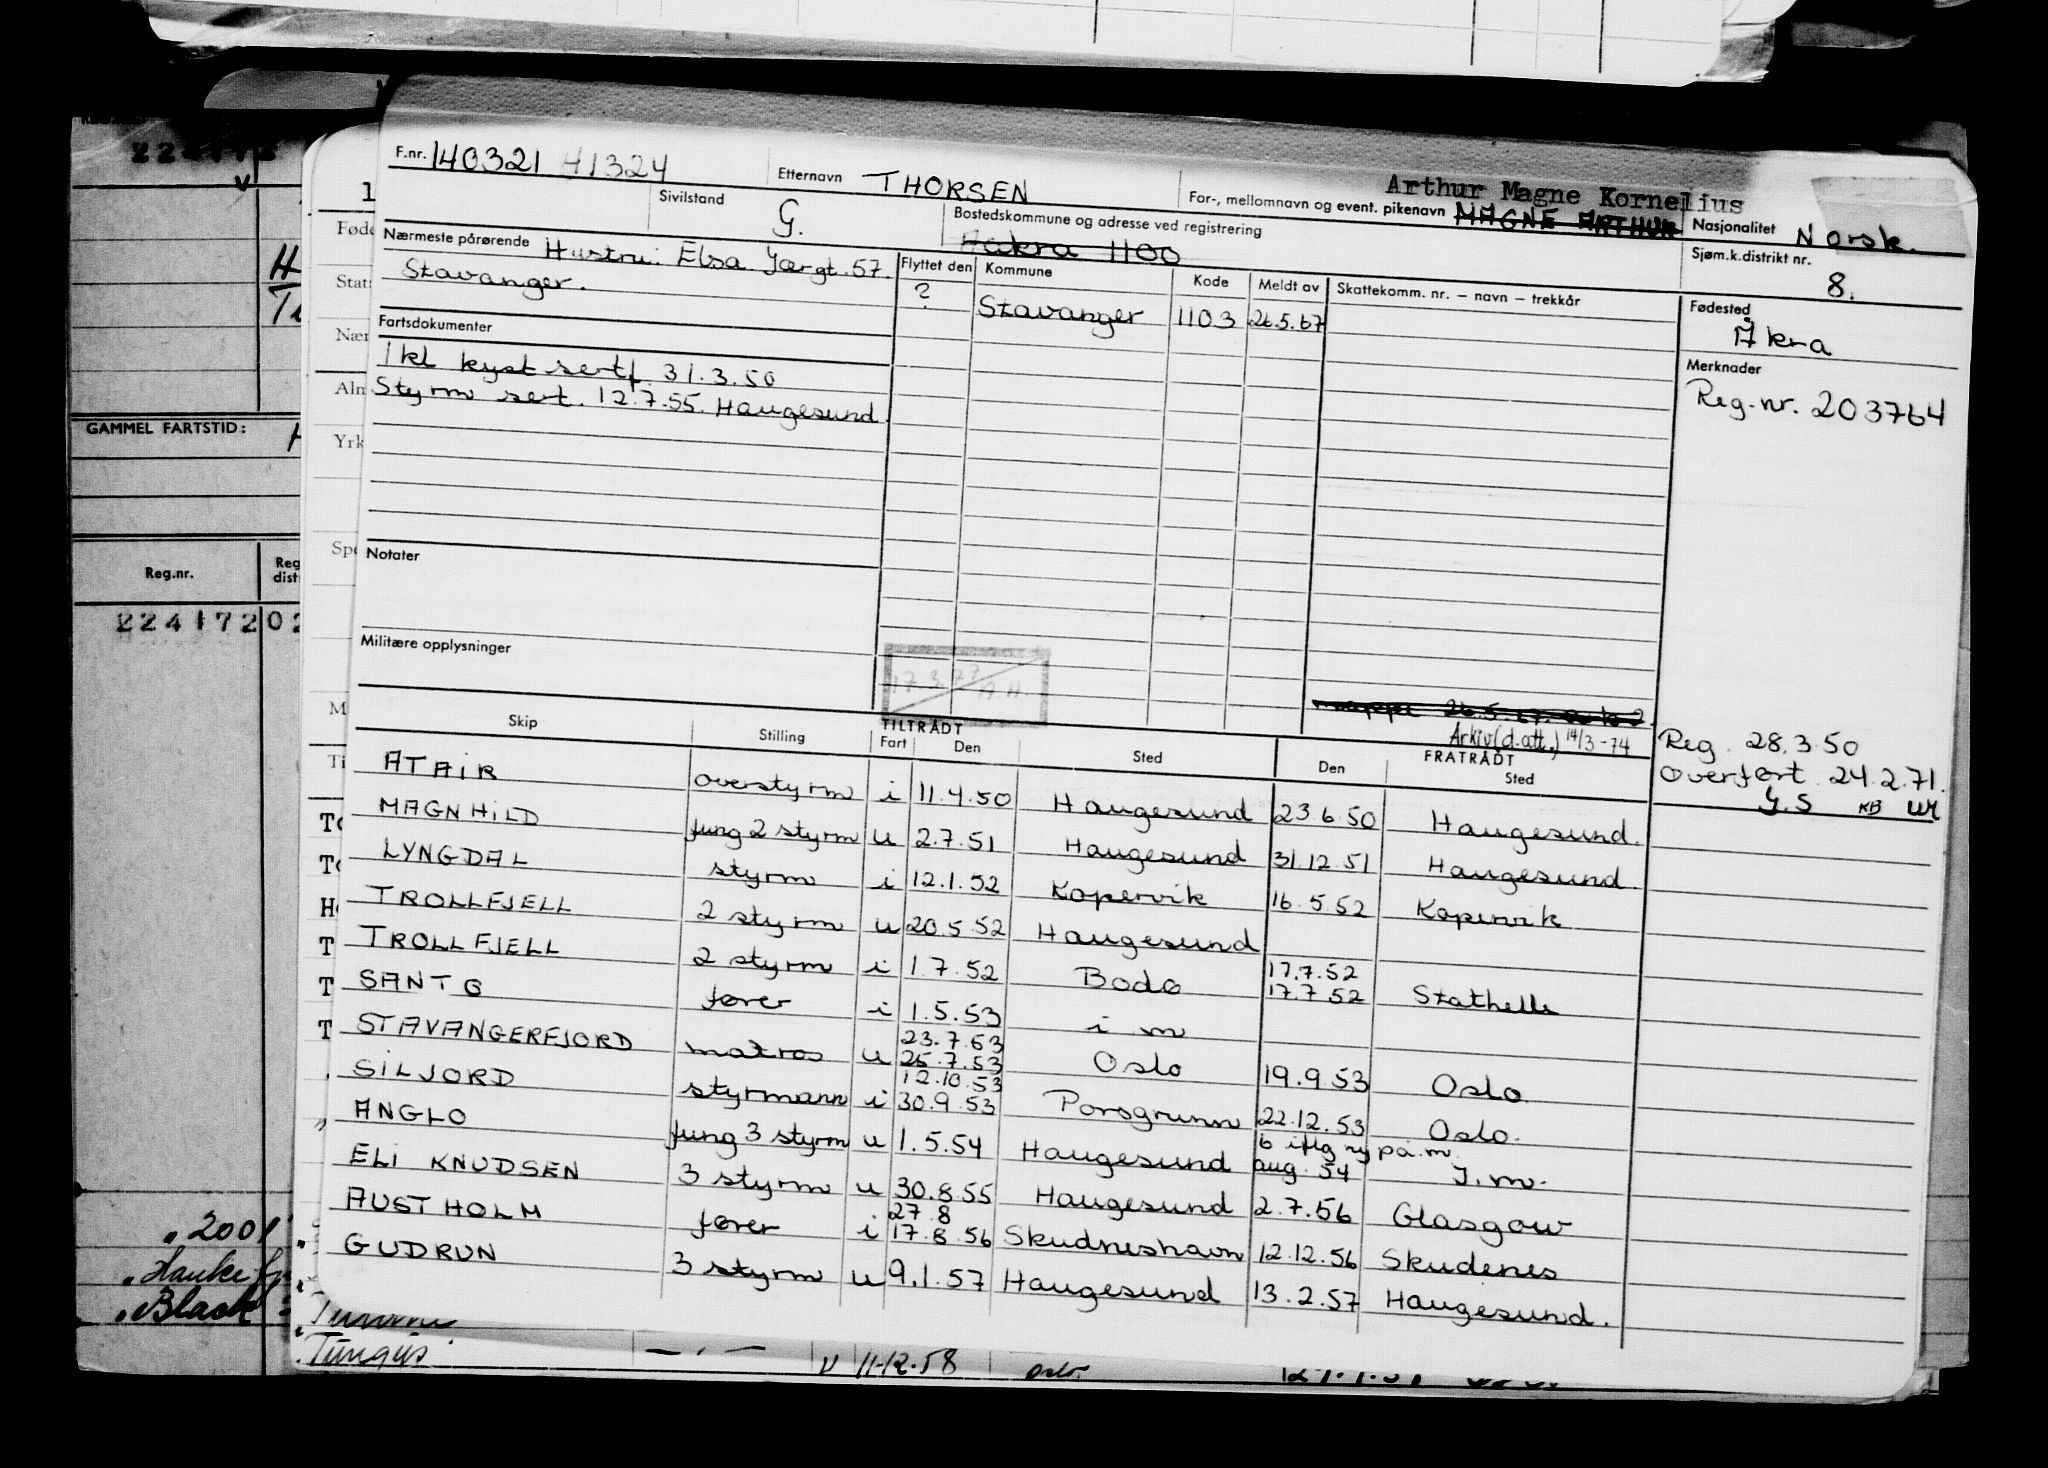 F.nr. 140321 41324
Etternavn THORSEN
For-, mellomnavn og event. pikenavn Arthur Magne Kornelius
MAGNE ARTHUR
Nasjonalitet Norsk.
Sivilstand G.
Bostedskommune og adresse ved registrering
1100
Sjøm.k.distrikt nr. 8.
Nærmeste pårørende Hustru: Elsa Jørgt. 57.
Stavanger.
Flyttet den Kommune Kode Meldt av Skattekomm. nr. – navn – trekkår
? Stavanger 1103 26.5.67
Fødested
Åkra
Fartsdokumenter
1 kl kyst sertf. 31.3.50
Styrm sert. 12.7.55. Haugesund.
Merknader
Reg.nr. 203764
Notater
Militære opplysninger
17.3.77 A.H.
26.5.67
Arkiv (d.att.) 14/3-74
Reg. 28.3.50
Overført 24.2.71.
G.S KB
Skip Stilling TILTRÅDT Fart Den Sted FRATRÅDT Den Sted
ATAIR overstyrm i 11.4.50 Haugesund 23.6.50 Haugesund.
MAGNHILD fung 2 styrm u 2.7.51 Haugesund 31.12.51 Haugesund.
LYNGDAL styrm i 12.1.52 Kopervik 16.5.52 Kopervik
TROLLFJELL 2 styrm u 20.5.52 Haugesund
TROLLFJELL 2 styrm i 1.7.52 Bodø 17.7.52
17.7.52 Stathelle
SANTG fører i 1.5.53 i m
STAVANGERFJORD matros u 23.7.53
25.7.53 Oslo 19.9.53 Oslo.
SILJORD styrmann i 12.10.53
30.9.53 Porsgrunn 22.12.53 Oslo.
ANGLO fung 3 styrm u 1.5.54 Haugesund 6 iflg ny på.m.
aug. 54 I.m.
ELI KNUDSEN 3 styrm u 30.8.55 Haugesund 2.7.56 Glasgow
AUSTHOLM fører i 27.8
17.8.56 Skudneshavn 12.12.56 Skudenes
GUDRUN 3 styrm u 9.1.57 Haugesund 13.2.57 Haugesund.
Tungus — . — u 11-12.58
GAMMEL FARTSTID:
Reg.nr.
224172
Hauke
Black